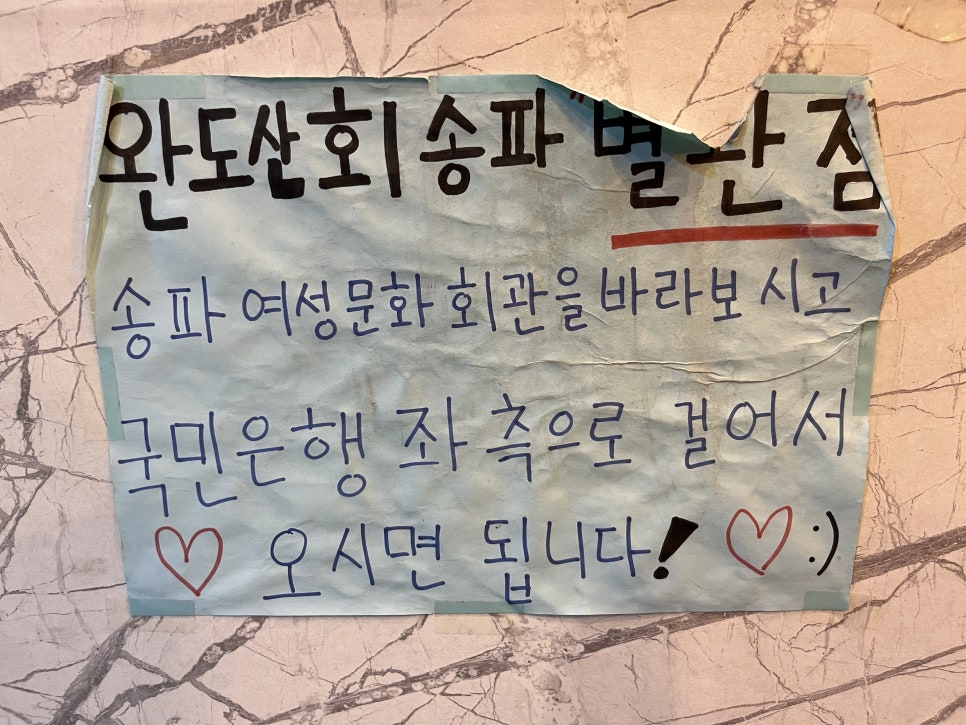 완도산회 송파 "별관점
송파 여성문화 회관을 바라보시고
국민은행 좌측으로 걸어서
♡ 오시면 됩니다! ♡ :)